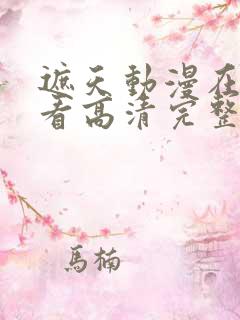 遮天動漫在
看高清完整
馬楠